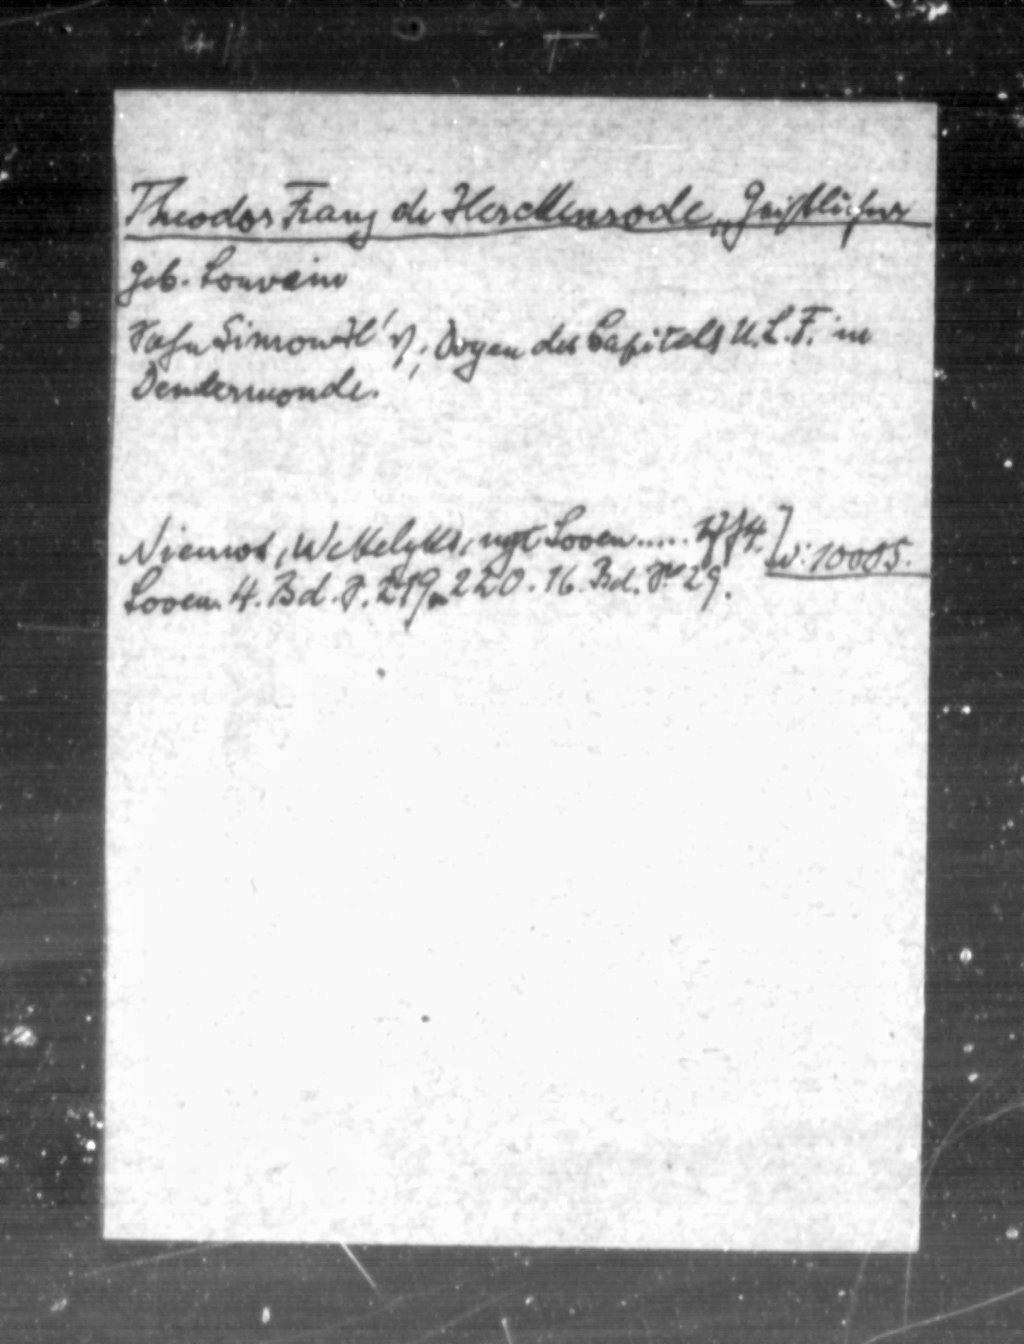 Theodor Franz de Herckenrode, Geistlicher
Geb. Louvain
Sohn Simon II; Doyen des Capitels U.L.F. in
Dendermonde.
Nieuws, Wekelyks, uyt Loven..... W: 10005.
Loven. 4. Bd. S. 219, 220. 16. Bd. S. 29.